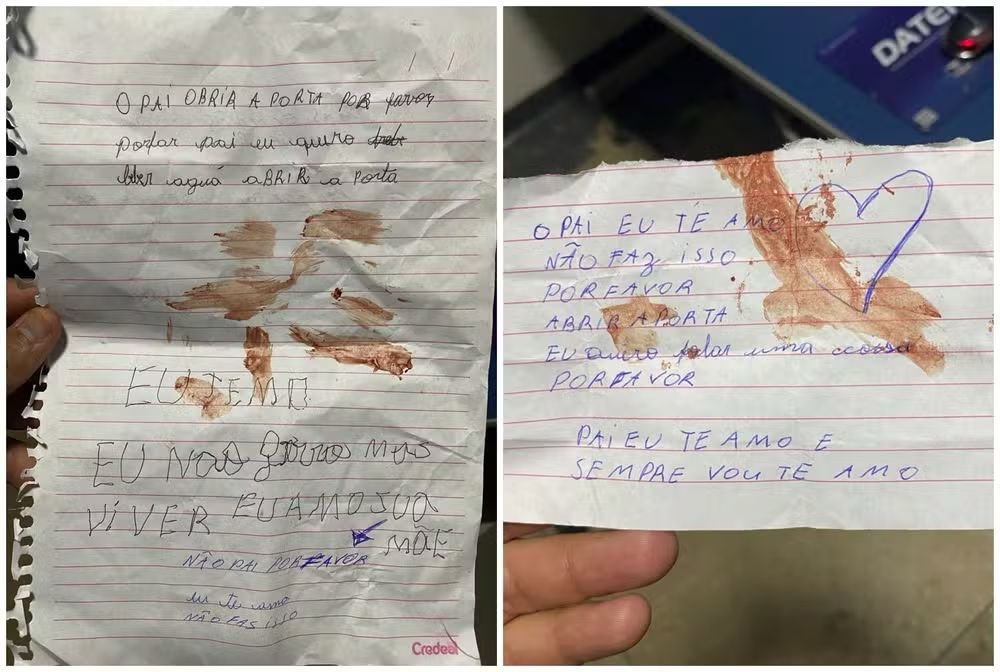 O PAI OBRIR A PORTA POR favor
porfar pai eu quero
beber aguá ABRIR a Porta
EU TEMO
EU NÃO quero mas
VIVER EU AMO SUA
MÃE
NÃO PAI POR FAVOR
eu te amo
NÃO FAS ISSO
Credeal
DATE
O PAI EU TE AMO
NÃO FAZ ISSO
POR FAVOR
ABRIR A PORTA
EU quero falar uma coossa
POR FAVOR
PAI EU TE AMO E
SEMPRE VOU TE AMO